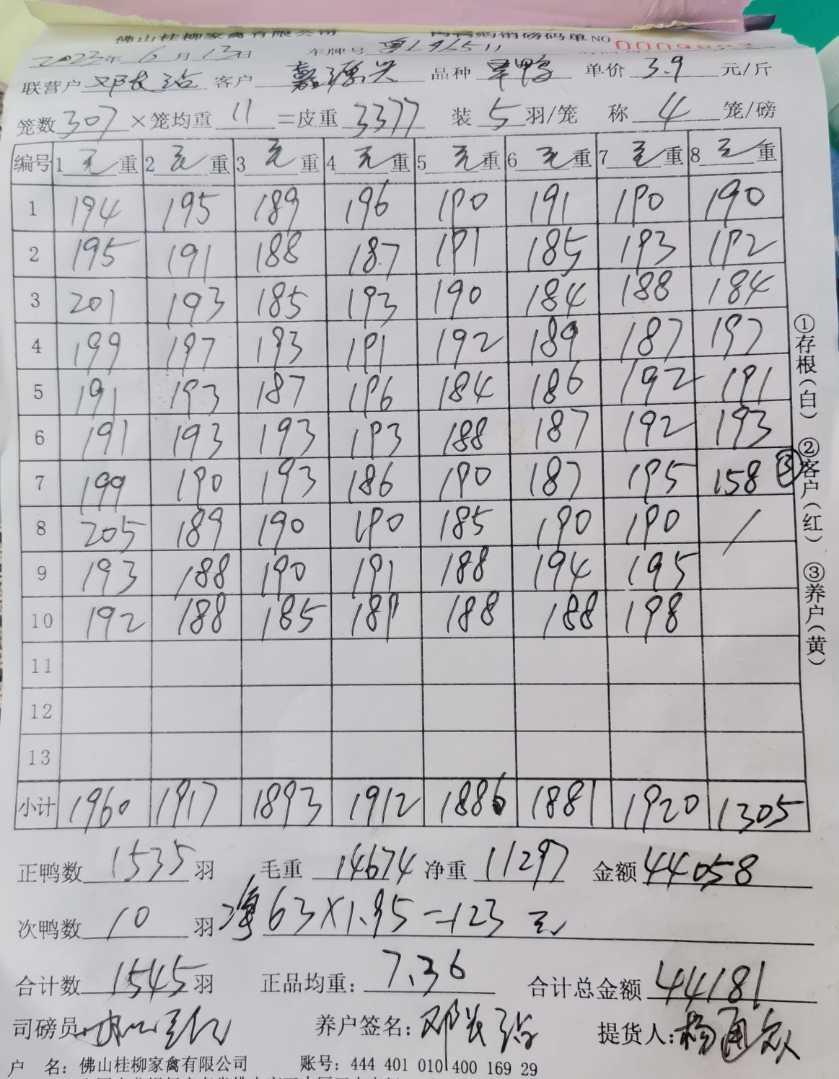 佛山桂柳家禽有限公司 磅码单 NO
2023年6月13日 车牌号 粤L9L511
联营户 邓长治 客户 嘉源兴 品种 单价 3.9 元/斤
笼数 307 ×笼均重 11 =皮重 3377 装 5 羽/笼 称 4 笼/磅
编号 1 毛重 2 毛重 3 毛重 4 毛重 5 毛重 6 毛重 7 毛重 8 毛重
1 194 195 189 196 190 191 190 190
2 195 191 188 187 191 185 193 192
3 201 193 185 193 190 184 188 184
4 199 197 193 191 192 189 187 197
5 191 193 187 196 184 186 192 191
6 191 193 193 193 188 187 192 193
7 199 190 193 186 190 187 195 158 ③
8 205 189 190 190 185 190 190 /
9 193 188 190 191 188 194 195
10 192 188 185 189 188 188 198
11
12
13
小计 1960 1917 1893 1912 1886 1881 1920 1305
正鸭数 1535 羽 毛重 14674 净重 11297 金额 44058
次鸭数 10 羽 净63×1.95=123元
合计数 1545 羽 正品均重: 7.36 合计总金额 44181
司磅员: 养户签名: 邓长治 提货人:
户 名: 佛山桂柳家禽有限公司 账号: 444 401 010 400 169 29
①存根(白) ②客户(红) ③养户(黄)